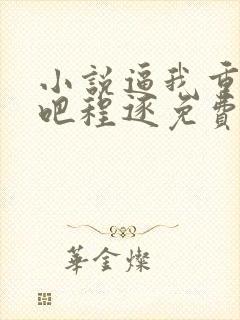 小說逼我重
吧程逐免費
華金燦